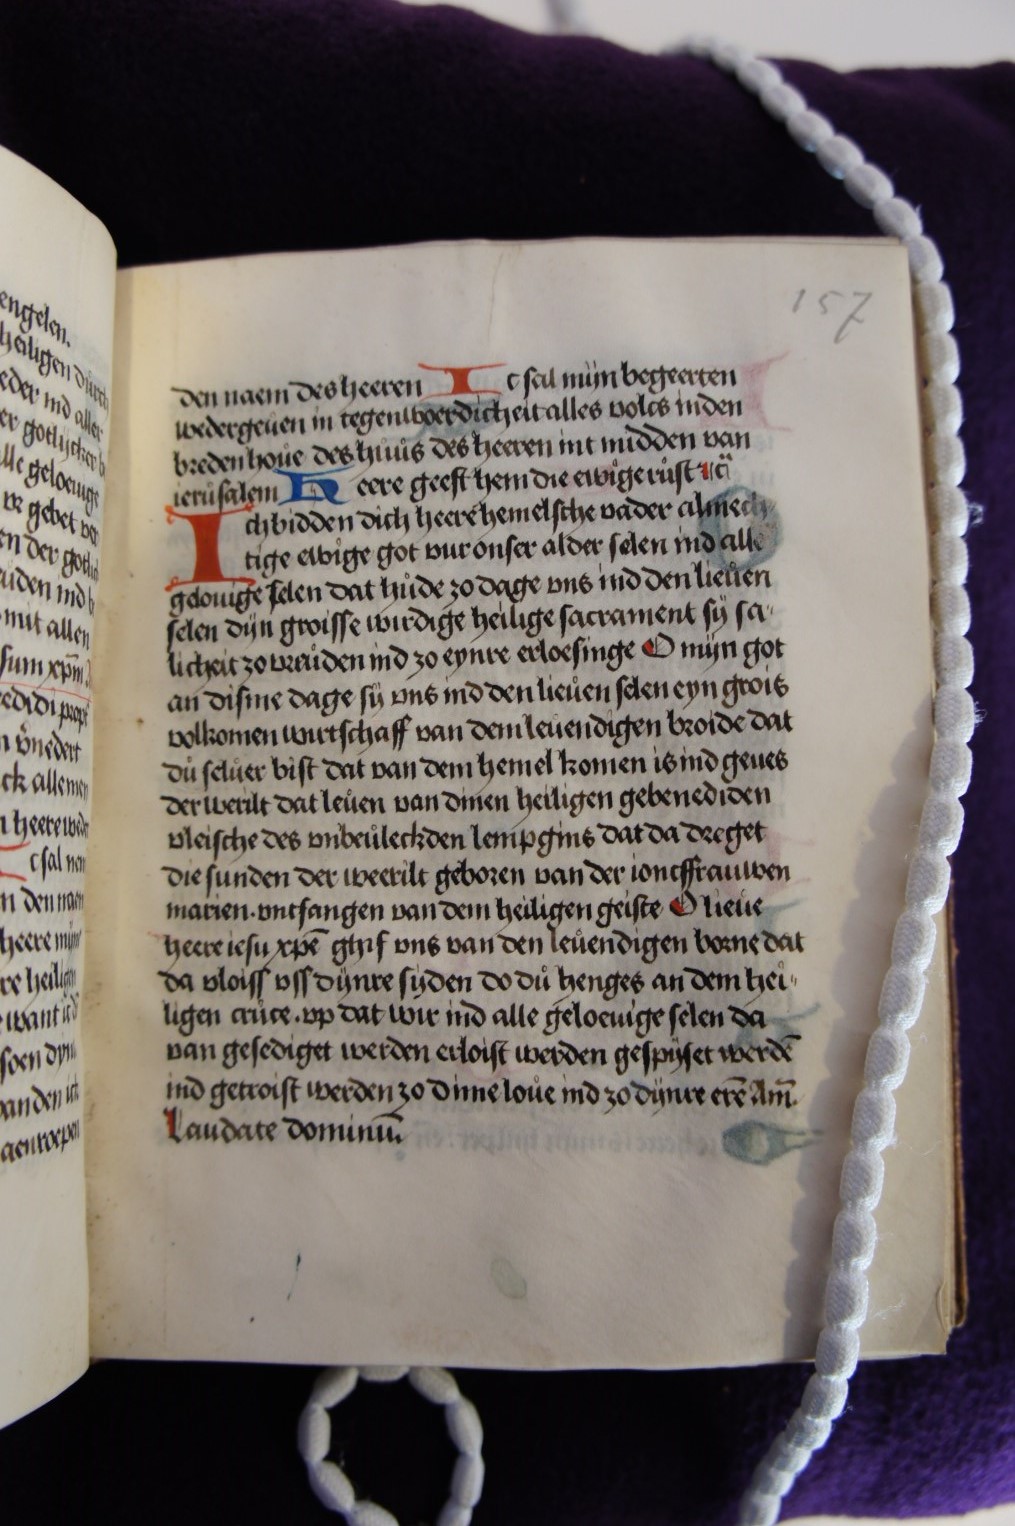 engelen.
heiligen durch
eder ind aller
er gotlicher
lle geloeuige
gebet
en der
uiden ind
mit allen
sum xpm
credidi
vnedert
ick allemen
heere
c sal
den
heere mijn
heilige
want
soen dyn
van den
aenroepen
157
den naem des heeren Ic sal mijn begeerten
wedergeuen in tegenwoerdicheit alles volcs in den
breden houe des huůs des heeren int midden van
ierusalem Heere geeft hem die ewige růst
Ich bidden dich heere hemelsche vader almech
tige ewige got vur onser alder selen ind alle
gelouige selen dat hůde zo dage vns ind den lieuen
selen dijn groisse wirdige heilige sacrament sij sa-
licheit zo vreuden ind zo eynre erloesinge O mijn got
an disme dage sij vns ind den lieuen selen eyn grois
volkomen wirtschaff van dem leuendigen broide dat
du seluer bist dat van dem hemel komen is ind geues
der werilt dat leuen van dinen heiligen gebenediden
vleische des vnbeuleckden lempgins dat da dreget
die sunden der weerilt geboren van der ioncffrauwen
marien. vntfangen van dem heiligen geiste O lieue
heere iesu xpē ghif vns van den leuendigen borne dat
da vloiss vss dynre syden do du henges an dem hei-
ligen cruce. vp dat wir ind alle geloeuige selen da
van gesediget werden erloist werden gespyset werdē
ind getroist werden zo dinre loue ind zo dynre erē Am̄.
Laudate dominū.